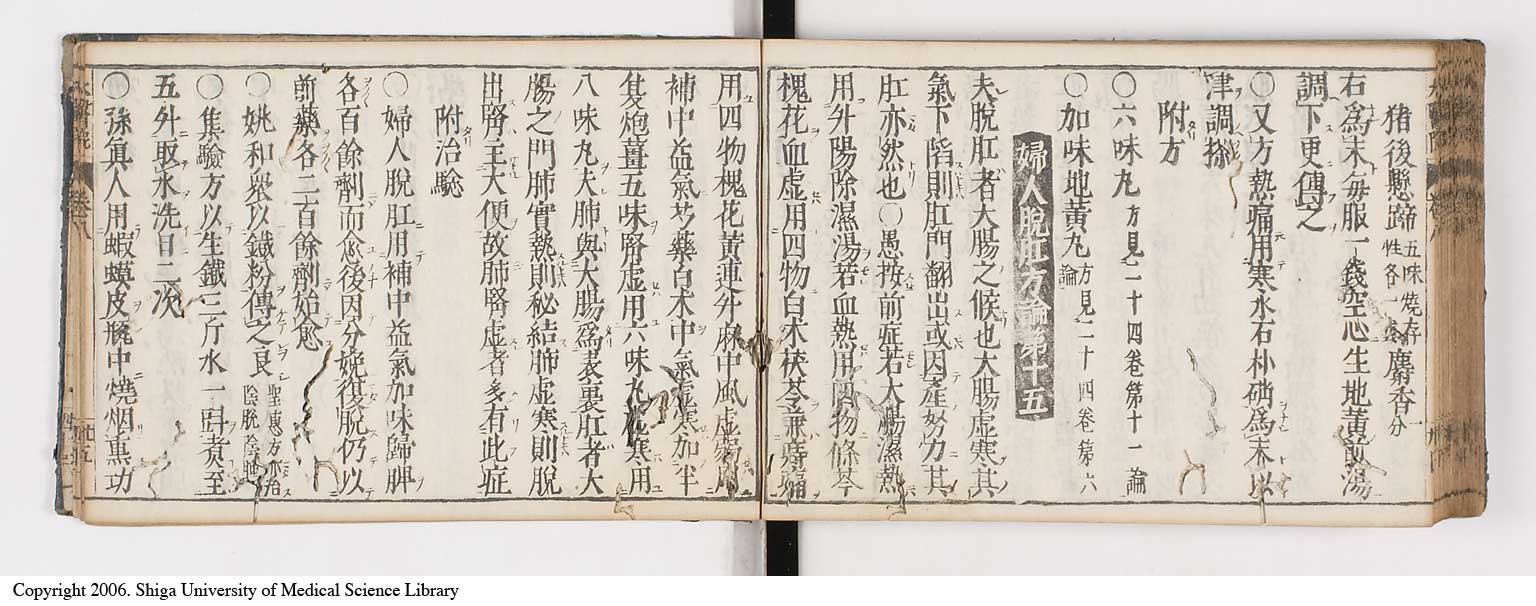 猪後懸蹄五味燒存性各一錢麝香一分
右為末每服一錢空心生地黃煎湯
調下更傅之
○又方熱痛用寒水石朴硝為末以
津調搽
附方
○六味丸方見二十四卷第十一論
○加味地黃丸方見二十四卷第六論
婦人脫肛方論第十五
夫脫肛者大腸之候也大腸虛寒其
氣下陷則肛門翻出或因產努力其
肛亦然也○愚按前症若大腸濕熱
用升陽除濕湯若血熱用四物條芩
槐花血虛用四物白朮茯苓兼痔痛
用四物槐花黃連升麻中風虛弱用
補中益氣芍藥白朮中氣虛寒加半
夏炮薑五味腎虛用六味丸虛寒用
八味丸夫肺與大腸為表裏肛者大
腸之門肺實熱則秘結肺虛寒則脫
出腎主大便故肺腎虛者多有此症
附治驗
○婦人脫肛用補中益氣加味歸脾
各百餘劑而愈後因分娩復脫仍以
前藥各二百餘劑始愈
○姚和衆以鐵粉傅之良聖惠方亦治陰脫陰
○集驗方以生鐵三斤水一斗煮至
五升取水洗日二次
○孫真人用蝦蟆皮瓶中燒烟熏功
Copyright 2006. Shiga University of Medical Science Library